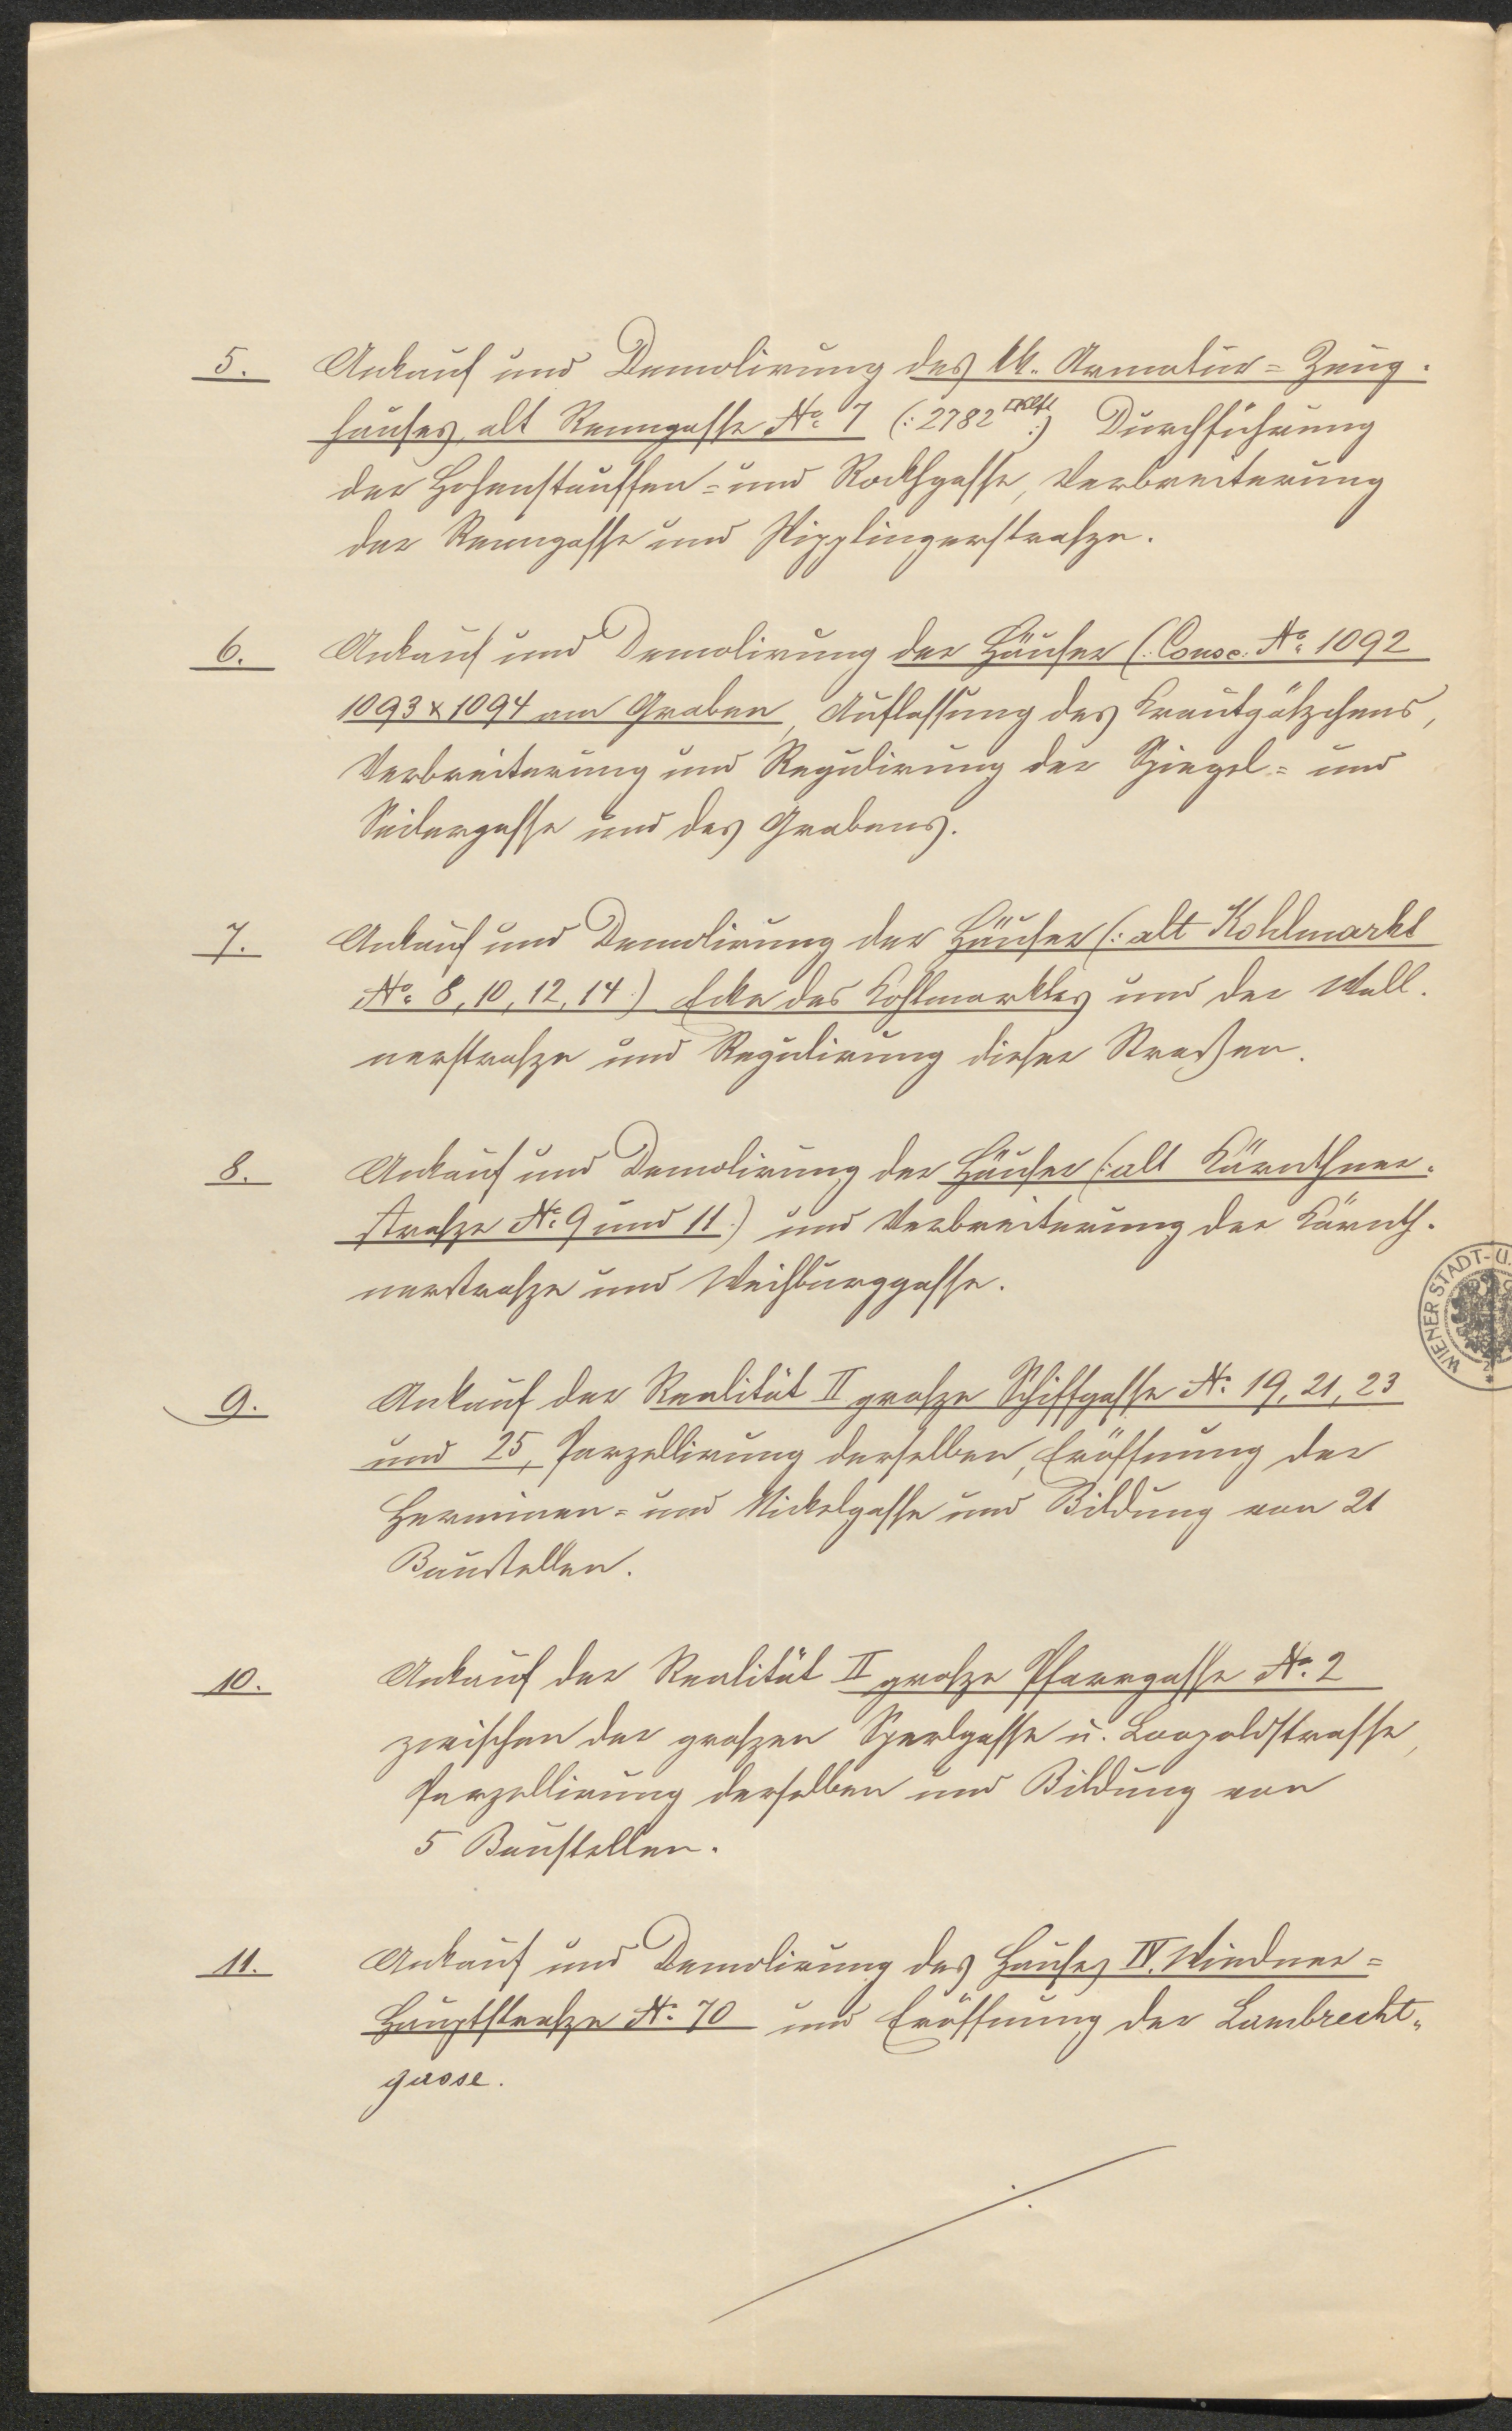 5. Ankauf und Demolirung des kk. Armatur=Zeug-
hauses, alt Renngasse No. 7 (: 2782 □Klft :) Durchführung
der Hohenstauffen= und Rockhgasse, Verbreiterung
der Renngasse und Wipplingerstrasze.
6. Ankauf und Demolirung der Häuser (: Consc. No. 1092
1093 & 1094 am Graben, Auflassung des Krautgäszchens,
Verbreiterung und Regulirung der Spiegel= und
Seilergasse und des Grabens.
7. Ankauf und Demolirung der Häuser (: alt Kohlmarkt
No. 8, 10, 12, 14.) Ecke des Kohlmarktes und der Wall-
nerstrasze und Regulirung dieser Straßen.
8. Ankauf und Demolirung der Häuser (: alt Kärnthner-
strasze No. 9 und 11.) und Verbreiterung der Kärnth-
nerstrasze und Weihburggasse.
9. Ankauf der Realität II grosze Schiffgasse No. 19, 21, 23
und 25, Parzellirung derselben, Eröffnung der
Herminen= und Nickelgasse und Bildung von 21
Baustellen.
10. Ankauf der Realität II grosze Pfarrgasse No. 2
zwischen der groszen Sperlgasse u. Leopoldstrasse,
Parzellirung derselben und Bildung von
5 Baustellen.
11. Ankauf und Demolirung des Hauses IV. Wiedner=
Hauptstrasze No. 70 und Eröffnung der Lambrecht-
gasse.
WIENER STADT-U.